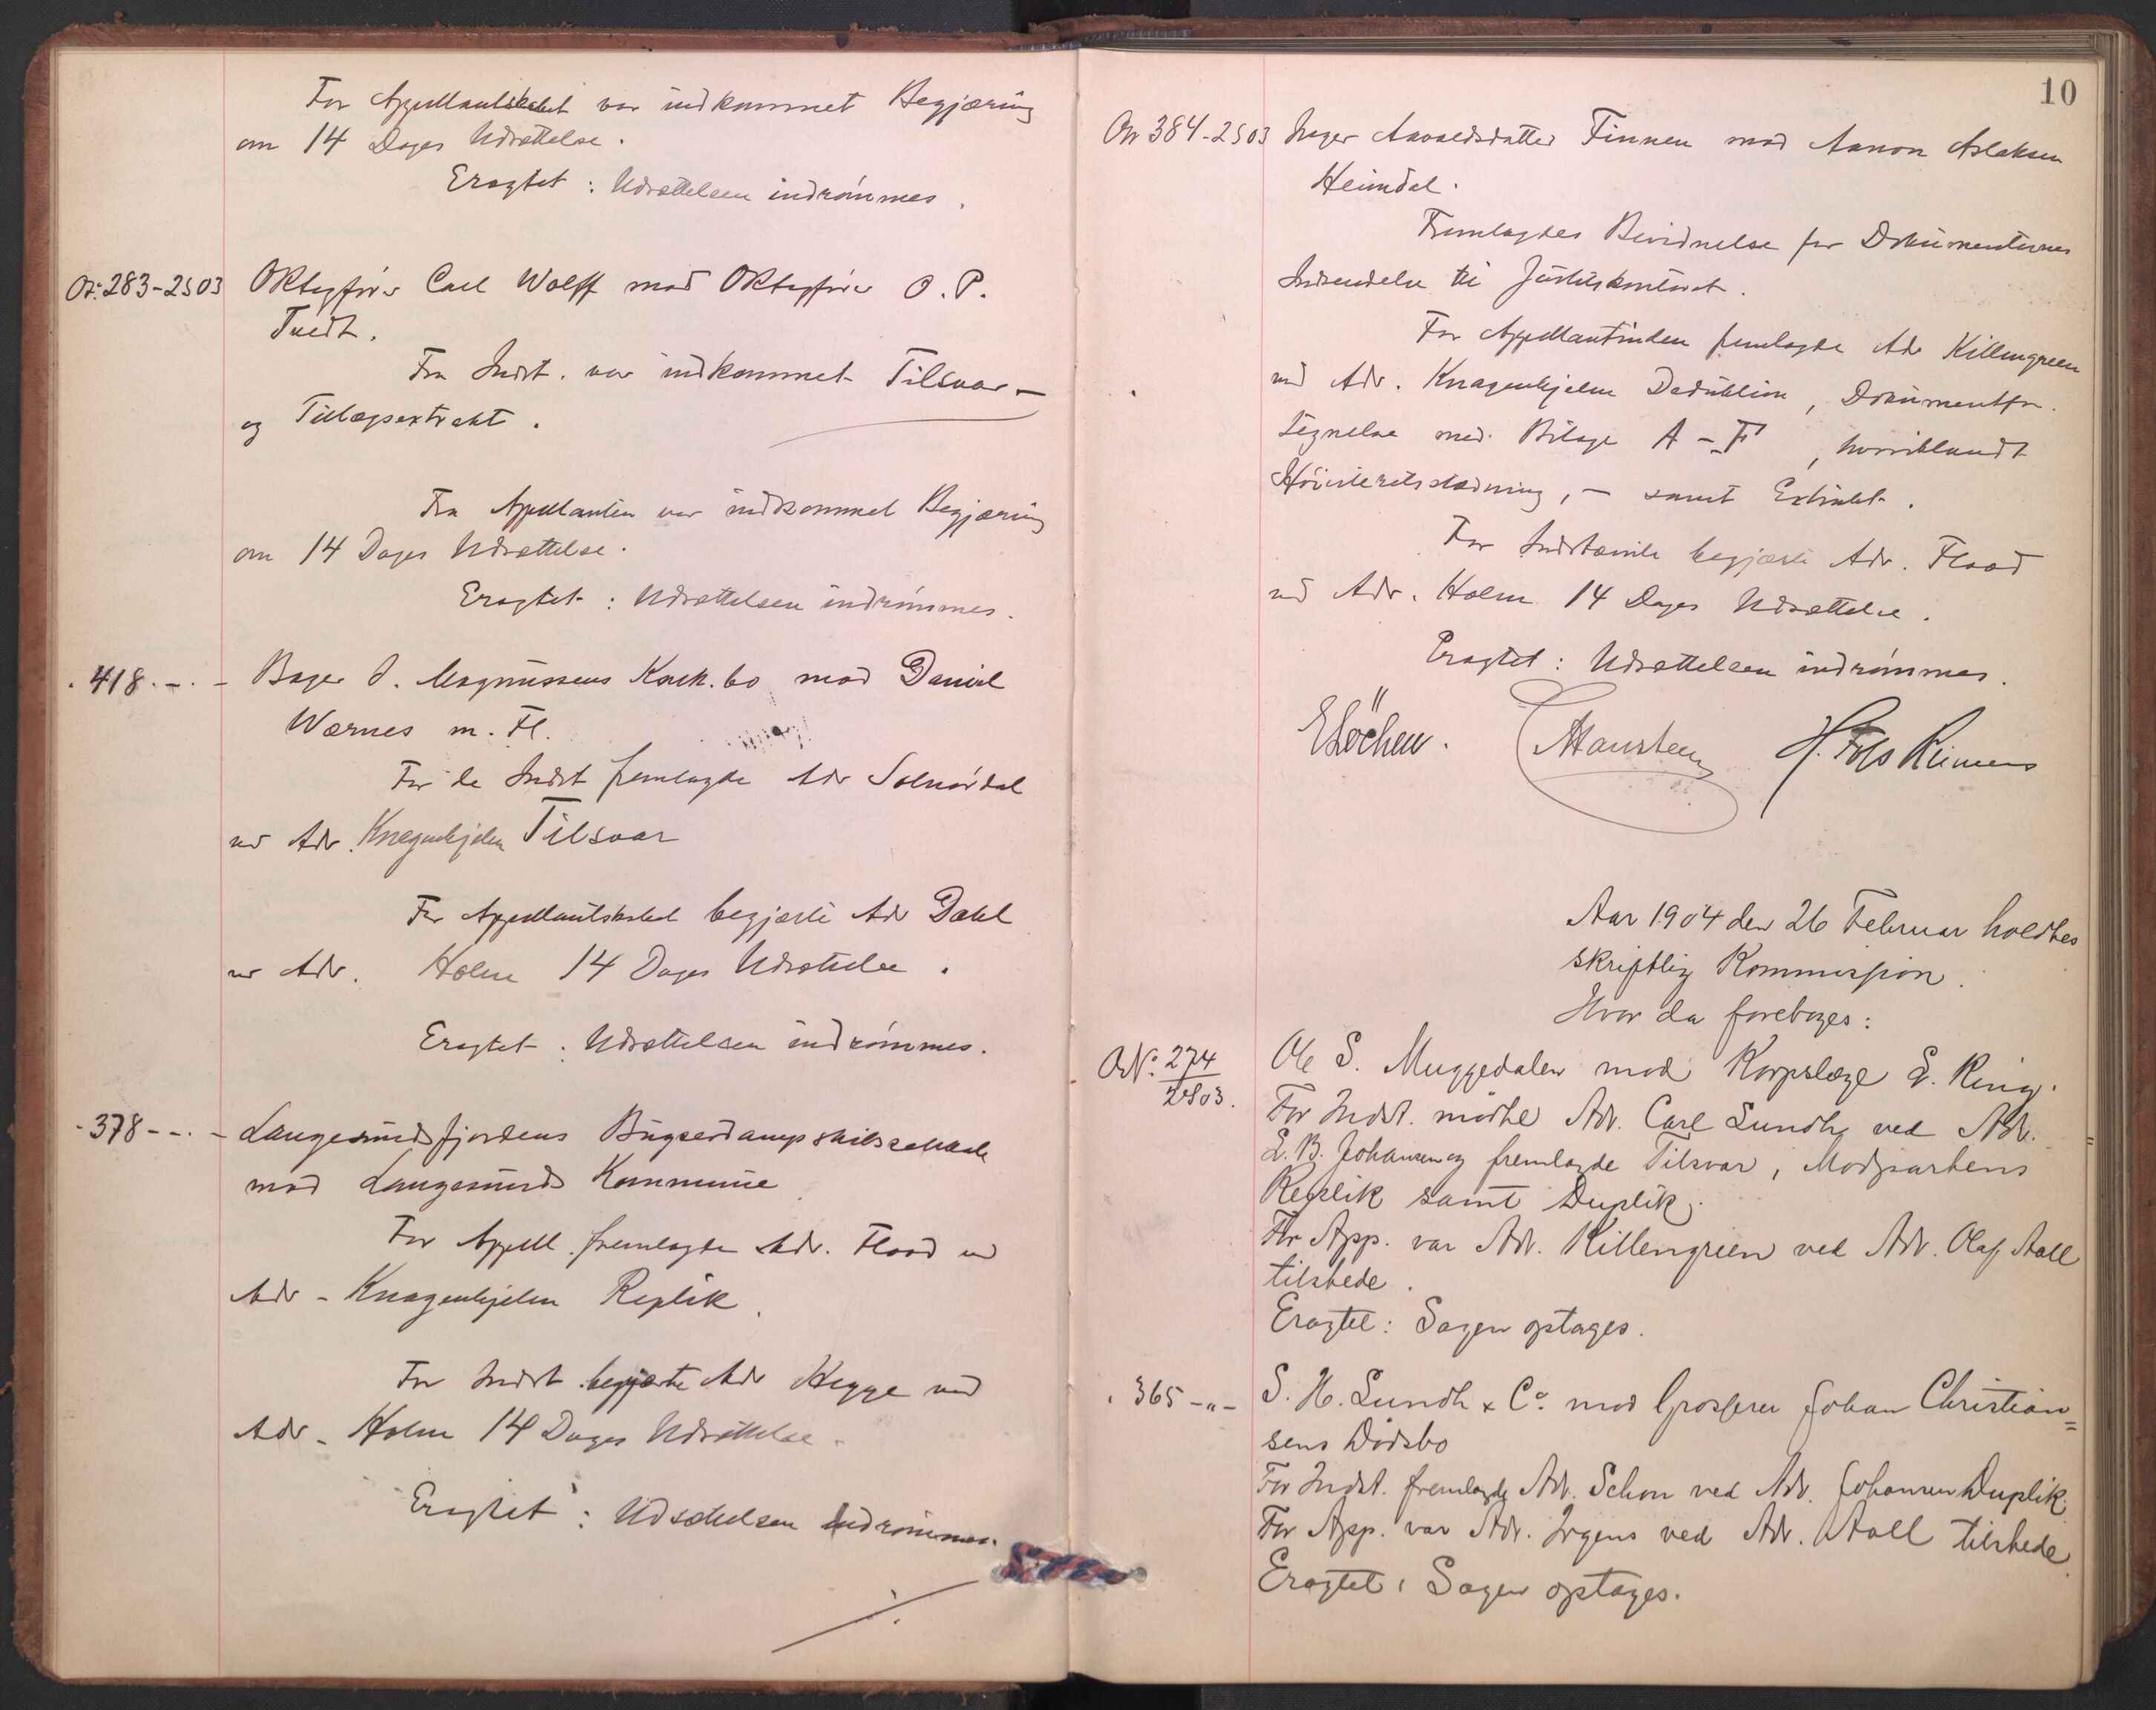 For Appellantskabet var indkommet Begjæring
om 14 Dages Udsættelse.
Eragtet: Udsættelsen indrømmes.
Or. 283-2S03 ORtsgfører Carl Wolff mod ORtsgfører O. P.
Tvedt.
Fra Indst. var indkommet Tilsvar -
og Tillægsextrakt.
Fra Appellanten var indkommet Begjæring
om 14 Dages Udsættelse.
Eragtet: Udsættelsen indrømmes.
. 418. -. - Bager O. Magnussens Konk.bo mod Daniel
Wærnes m. Fl.
For de Indst fremlagde Adv Solnørdal
ved Adv. Knagenhjelm Tilsvar
For Appellantskabet begjærte Adv Dahl
ved Adv. Holm 14 Dages Udsættelse.
Eragtet: Udsættelsen indrømmes.
- 378 - -. - Langesundsfjordens Bugserdampskibsselskab
mod Langesunds Kommune
For Appell. fremlagde Adv. Flood ved
Adv - Knagenhjelm Replik.
For Indst. begjærte Adv Hegge ved
Adv - Holm 14 Dages Udsættelse.
Eragtet: Udsættelsen indrømmes.
10
Or 384-2S03 Inger Aavoldsdatter Finnen mod Aanon Aslaksen
Heimdal.
Fremlagdes Bevidnelse for Dokumenternes
Indsendelse til Justitskontoret.
For Appellantinden fremlagde Adv Killengreen
ved Adv. Knagenhjelm Deduktion, Dokumentfor-
tegnelse med Bilage A - F, hvoriblandt
Høiesteretsstævning, - samt Extrakt.
For Indstævnte begjærte Adv. Flood
ved Adv. Holm 14 Dages Udsættelse.
Eragtet: Udsættelsen indrømmes.
E Löchen. Hansteen H. Foss Reimers
Aar 1904 den 26 Februar holdtes
skriftlig Kommission.
Hvor da foretoges:
O.N: 274/2S03. Ole S. Muggedalen mod Korpslæge E. Ring.
For Indst. mødte Adv. Carl Lundh ved Adv.
L. B. Johansen og fremlagde Tilsvar, Modpartens
Replik samt Duplik.
For App. var Adv. Killengreen ved Adv. Olaf Aall
tilstede.
Eragtet: Sagen optages.
. 365 -"- S. H. Lundh & Co. mod Grosserer Johan Christian=
sens Dødsbo
For Indst. fremlagde Adv. Schou ved Adv. Johansen Duplik.
For App. var Adv. Irgens ved Adv. Aall tilstede.
Eragtet: Sagen optages.